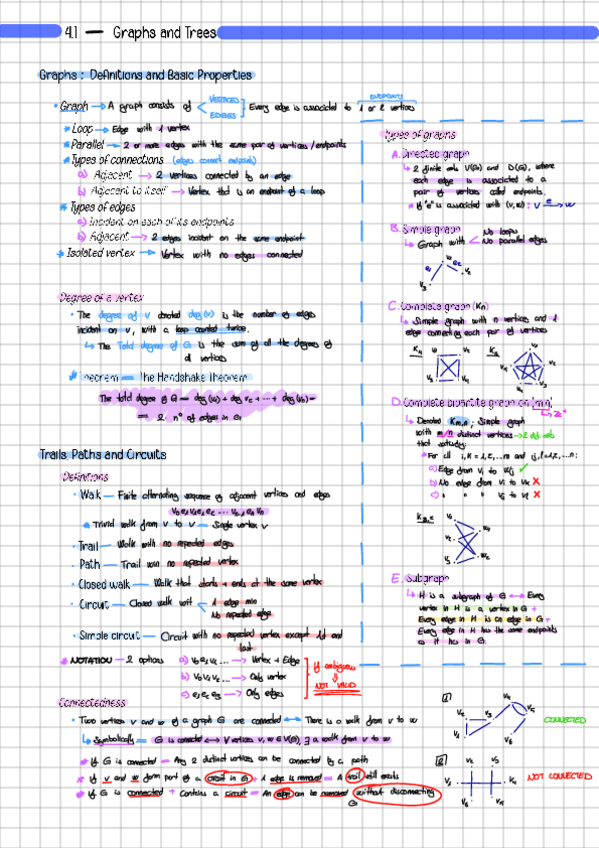 4.1 — Graphs and Trees
Graphs : Definitions and Basic Properties
Graph → A graph consists of
VERTICES
EDGES
Every edge is associated to 1 or 2 vertices
ENDPOINTS
Loop → Edge with 1 vertex
Parallel → 2 or more edges with the same pair of vertices / endpoints
Types of connections (edges connect endpoints)
a) Adjacent → 2 vertices connected by an edge
b) Adjacent to itself → Vertex that is an endpoint of a loop
Types of edges
a) Incident on each of its endpoints
b) Adjacent → 2 edges incident on the same endpoint
Isolated vertex → Vertex with no edges connected
Degree of a vertex
The degree of v denoted deg(v) is the number of edges
incident on v, with a loop counted twice.
↳ The Total degree of G is the sum of all the degrees of
all vertices
Theorem — The Handshake Theorem
The total degree of G = deg(v1) + deg(v2) + ... + deg(vn) =
= 2 · nº of edges in G
Trails, Paths and Circuits
Definitions
Walk — Finite alternating sequence of adjacent vertices and edges
Trivial walk from v to v — Single vertex v
Trail — Walk with no repeated edges
Path — Trail with no repeated vertex
Closed walk — Walk that starts + ends at the same vertex
Circuit — Closed walk with
1 edge min
No repeated edge
Simple circuit — Circuit with no repeated vertex except 1st and
last
NOTATION — 2 options
a) v0 e1 v1 ... → Vertex + Edge
b) v0 v1 ... → Only vertex
c) e1 e2 e3 → Only edges
If ambiguous
NOT VALID
Connectedness
Two vertices v and w of a graph G are connected ↔ There is a walk from v to w
↳ Symbolically — G is connected ↔ ∀ vertices v, w ∈ V(G), ∃ a walk from v to w
If G is connected — Any 2 distinct vertices can be connected by a path
If v and w form part of a circuit in G + 1 edge is removed — A trail still exists
If G is connected + Contains a circuit — An edge can be removed without disconnecting
G
Types of graphs
A. Directed graph
↳ 2 finite sets V(G) and D(G), where
each edge is associated to a
pair of vertices called endpoints.
If "e" is associated with (v, w) : v → w
e
B. Simple graph
↳ Graph with
No loops
No parallel edges
C. Complete graph (Kn)
↳ Simple graph with n vertices and 1
edge connecting each pair of vertices
D. Complete bipartite graph on (m,n)
↳ Denoted Km,n ; Simple graph
with m/n distinct vertices
that satisfy:
For all i, k = 1, 2, ... m and j, l = 1, 2, ... n:
a) Edge from vi to wj ✓
b) No edge from vi to vk ✗
E. Subgraph
↳ H is a subgraph of G ↔ Every
vertex in H is a vertex in G +
Every edge in H is an edge in G +
Every edge in H has the same endpoints
as it has in G.
1
CONNECTED
2
NOT CONNECTED